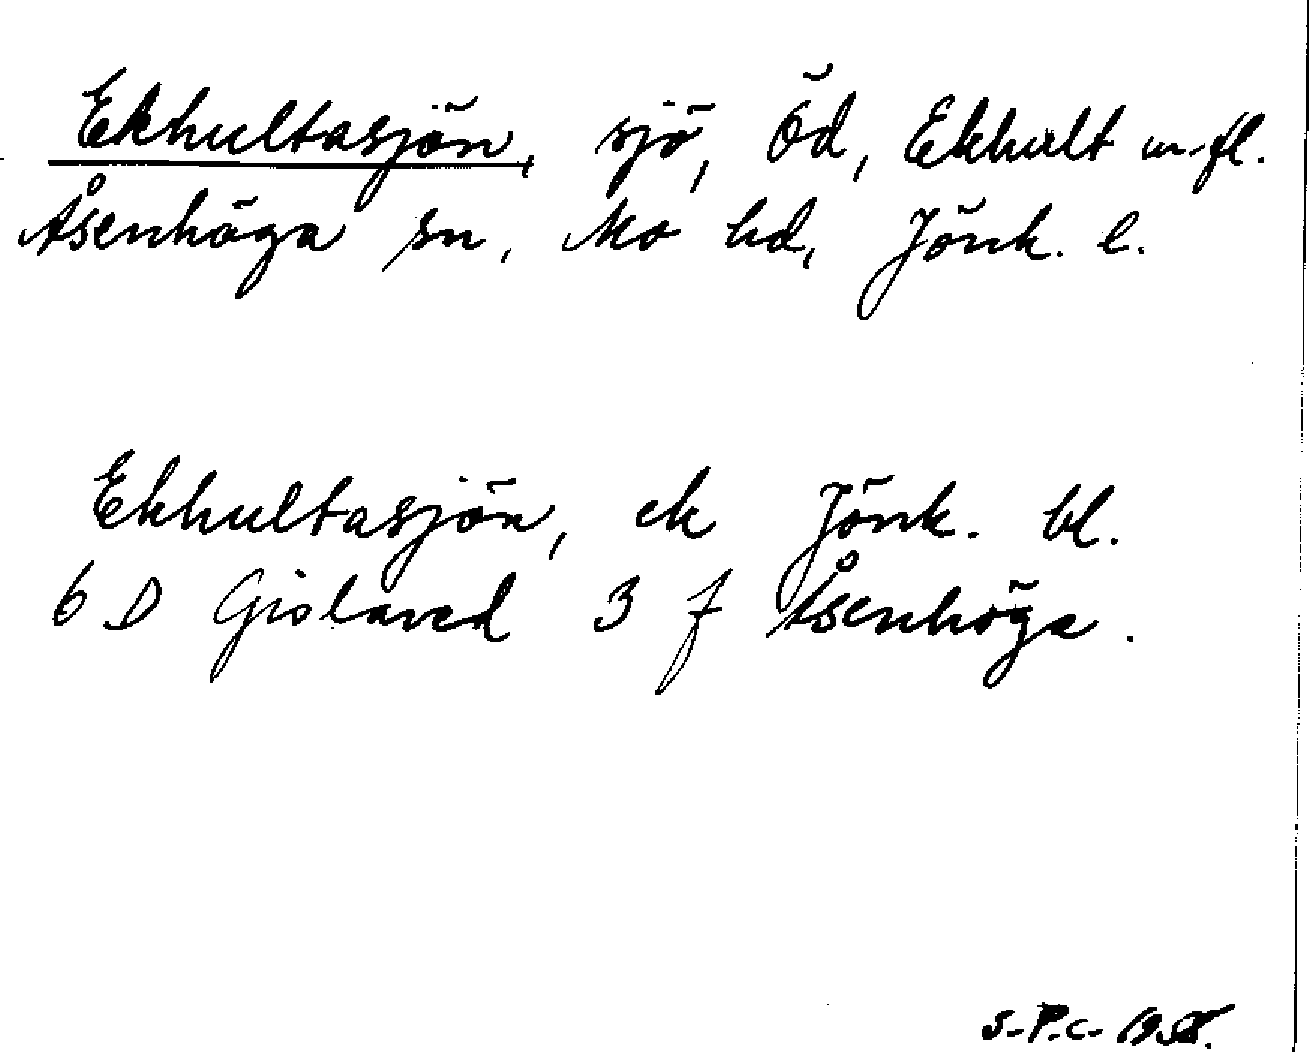 Ekhultasjön, sjö, Öd, Ekhult m.fl.
Åsenhöga sn, Mo hd, Jönk. l.
Ekhultasjön, ek Jönk. bl.
6 D Gislaved 3 f Åsenhöga.
S.P.C.